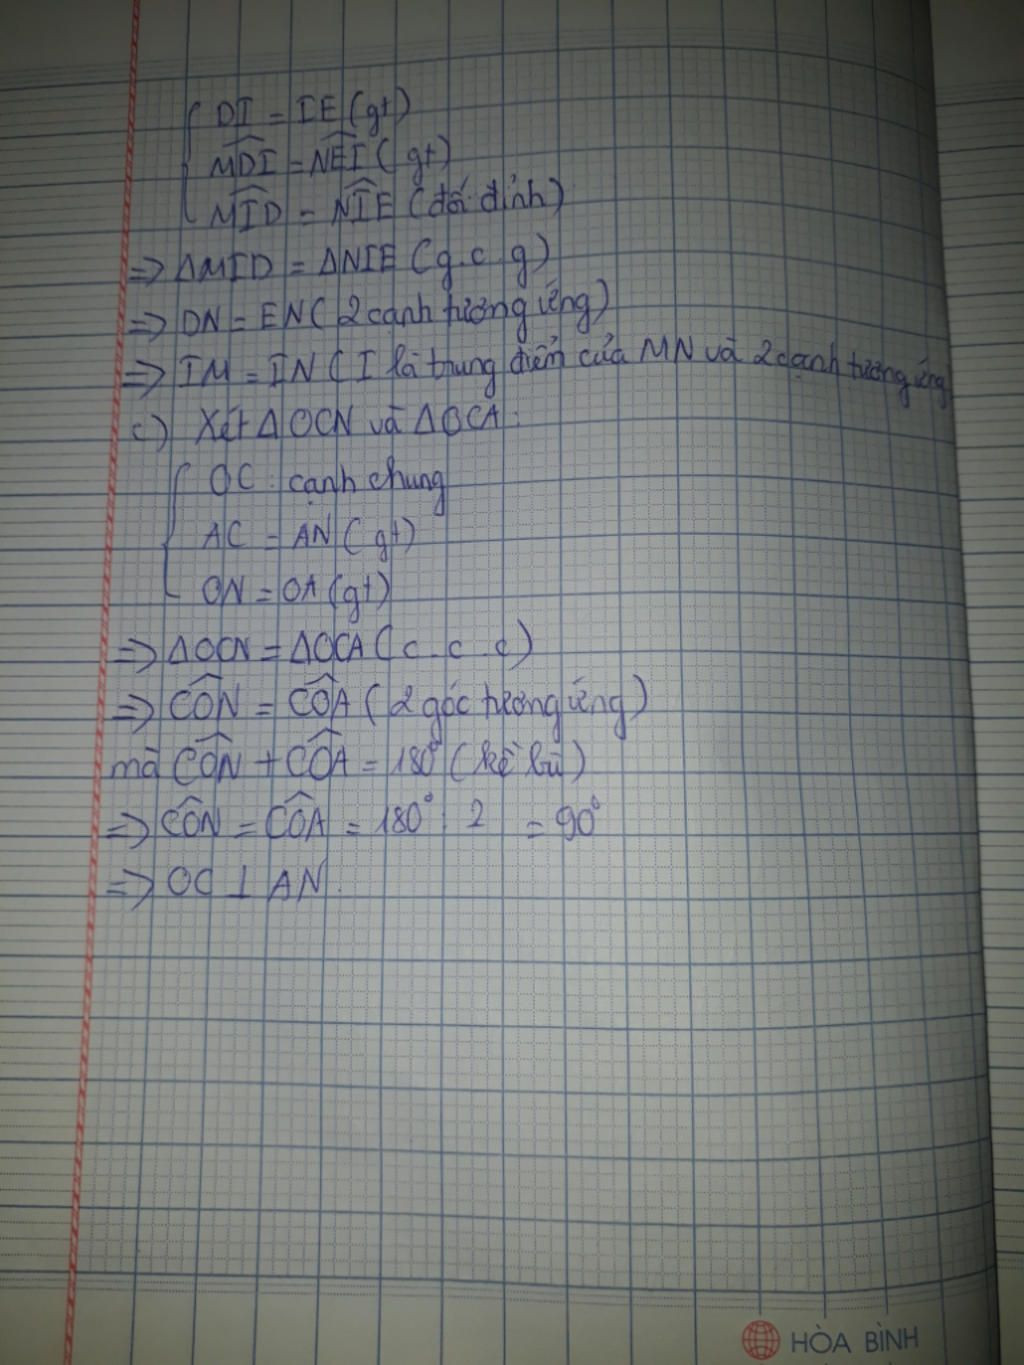 DI = IE (gt)
MDI = NEI (gt)
MID = NIE (đối đỉnh)
=> ΔMID = ΔNIE (g.c.g)
=> DN = EN (2 cạnh tương ứng)
=> IM = IN (I là trung điểm của MN và 2 cạnh tương ứng
c) Xét ΔOCN và ΔOCA:
OC: cạnh chung
AC = AN (gt)
ON = OA (gt)
=> ΔOCN = ΔOCA (c.c.c)
=> CON = COA (2 góc tương ứng)
mà CON + COA = 180° (kề bù)
=> CON = COA = 180° : 2 = 90°
=> OC ⊥ AN.
HÒA BÌNH